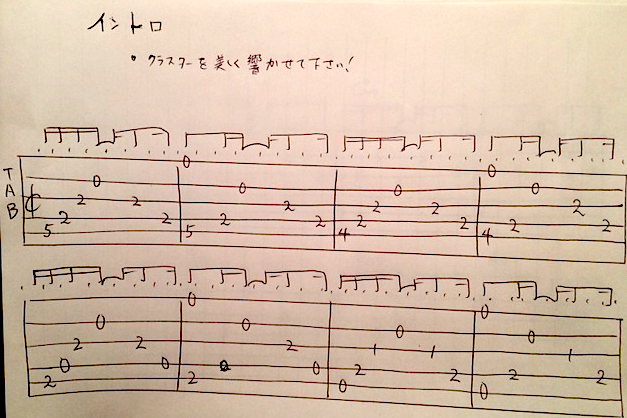 イントロ
• クラスターを美しく響かせて下さい!
T
A
B
0 0
0 0 0 0
2 2 2 2 2 2
2 2 2 2 2 2 2 2
5 5 4 4
0 0
0 0 0 0
2 2 2 1 1 1
0 0 0 0 2 2 2 2
2 2 0 0